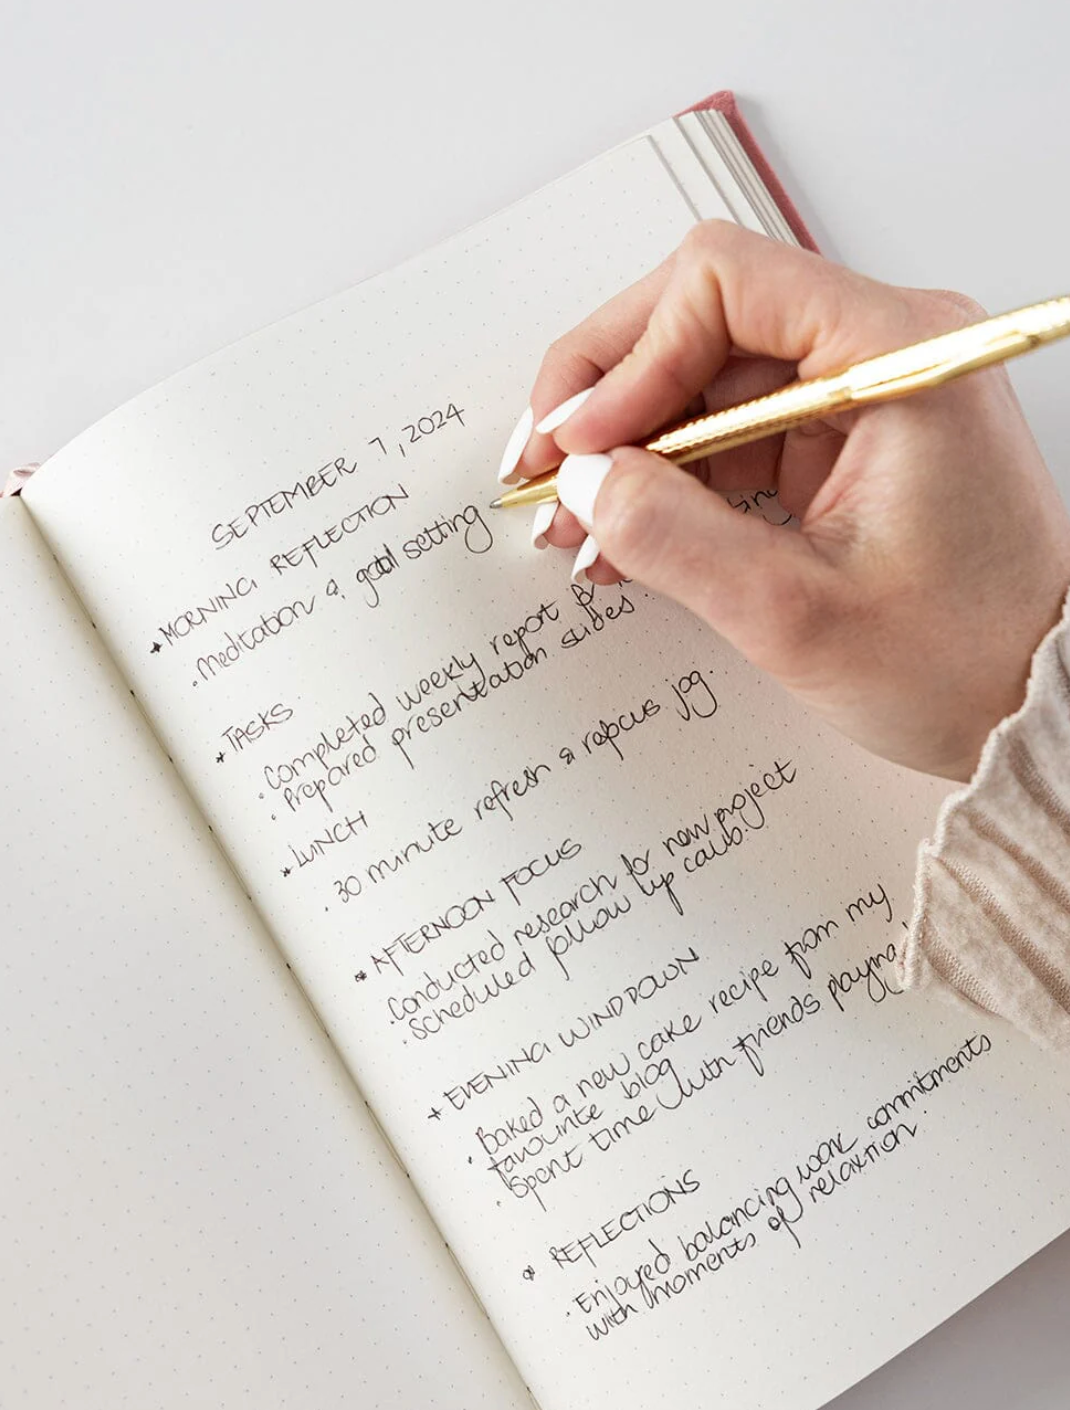 SEPTEMBER 7, 2024
* MORNING REFLECTION
. Meditation & goal setting
* TASKS
. Completed weekly report
. Prepared presentation slides
* LUNCH
. 30 minute refresh & refocus jog.
* AFTERNOON FOCUS
. Conducted research for new project
. Scheduled follow up calls.
* EVENING WIND DOWN
. Baked a new cake recipe from my
favourite blog
. Spent time with friends playing
* REFLECTIONS
. Enjoyed balancing work commitments
with moments of relaxtion